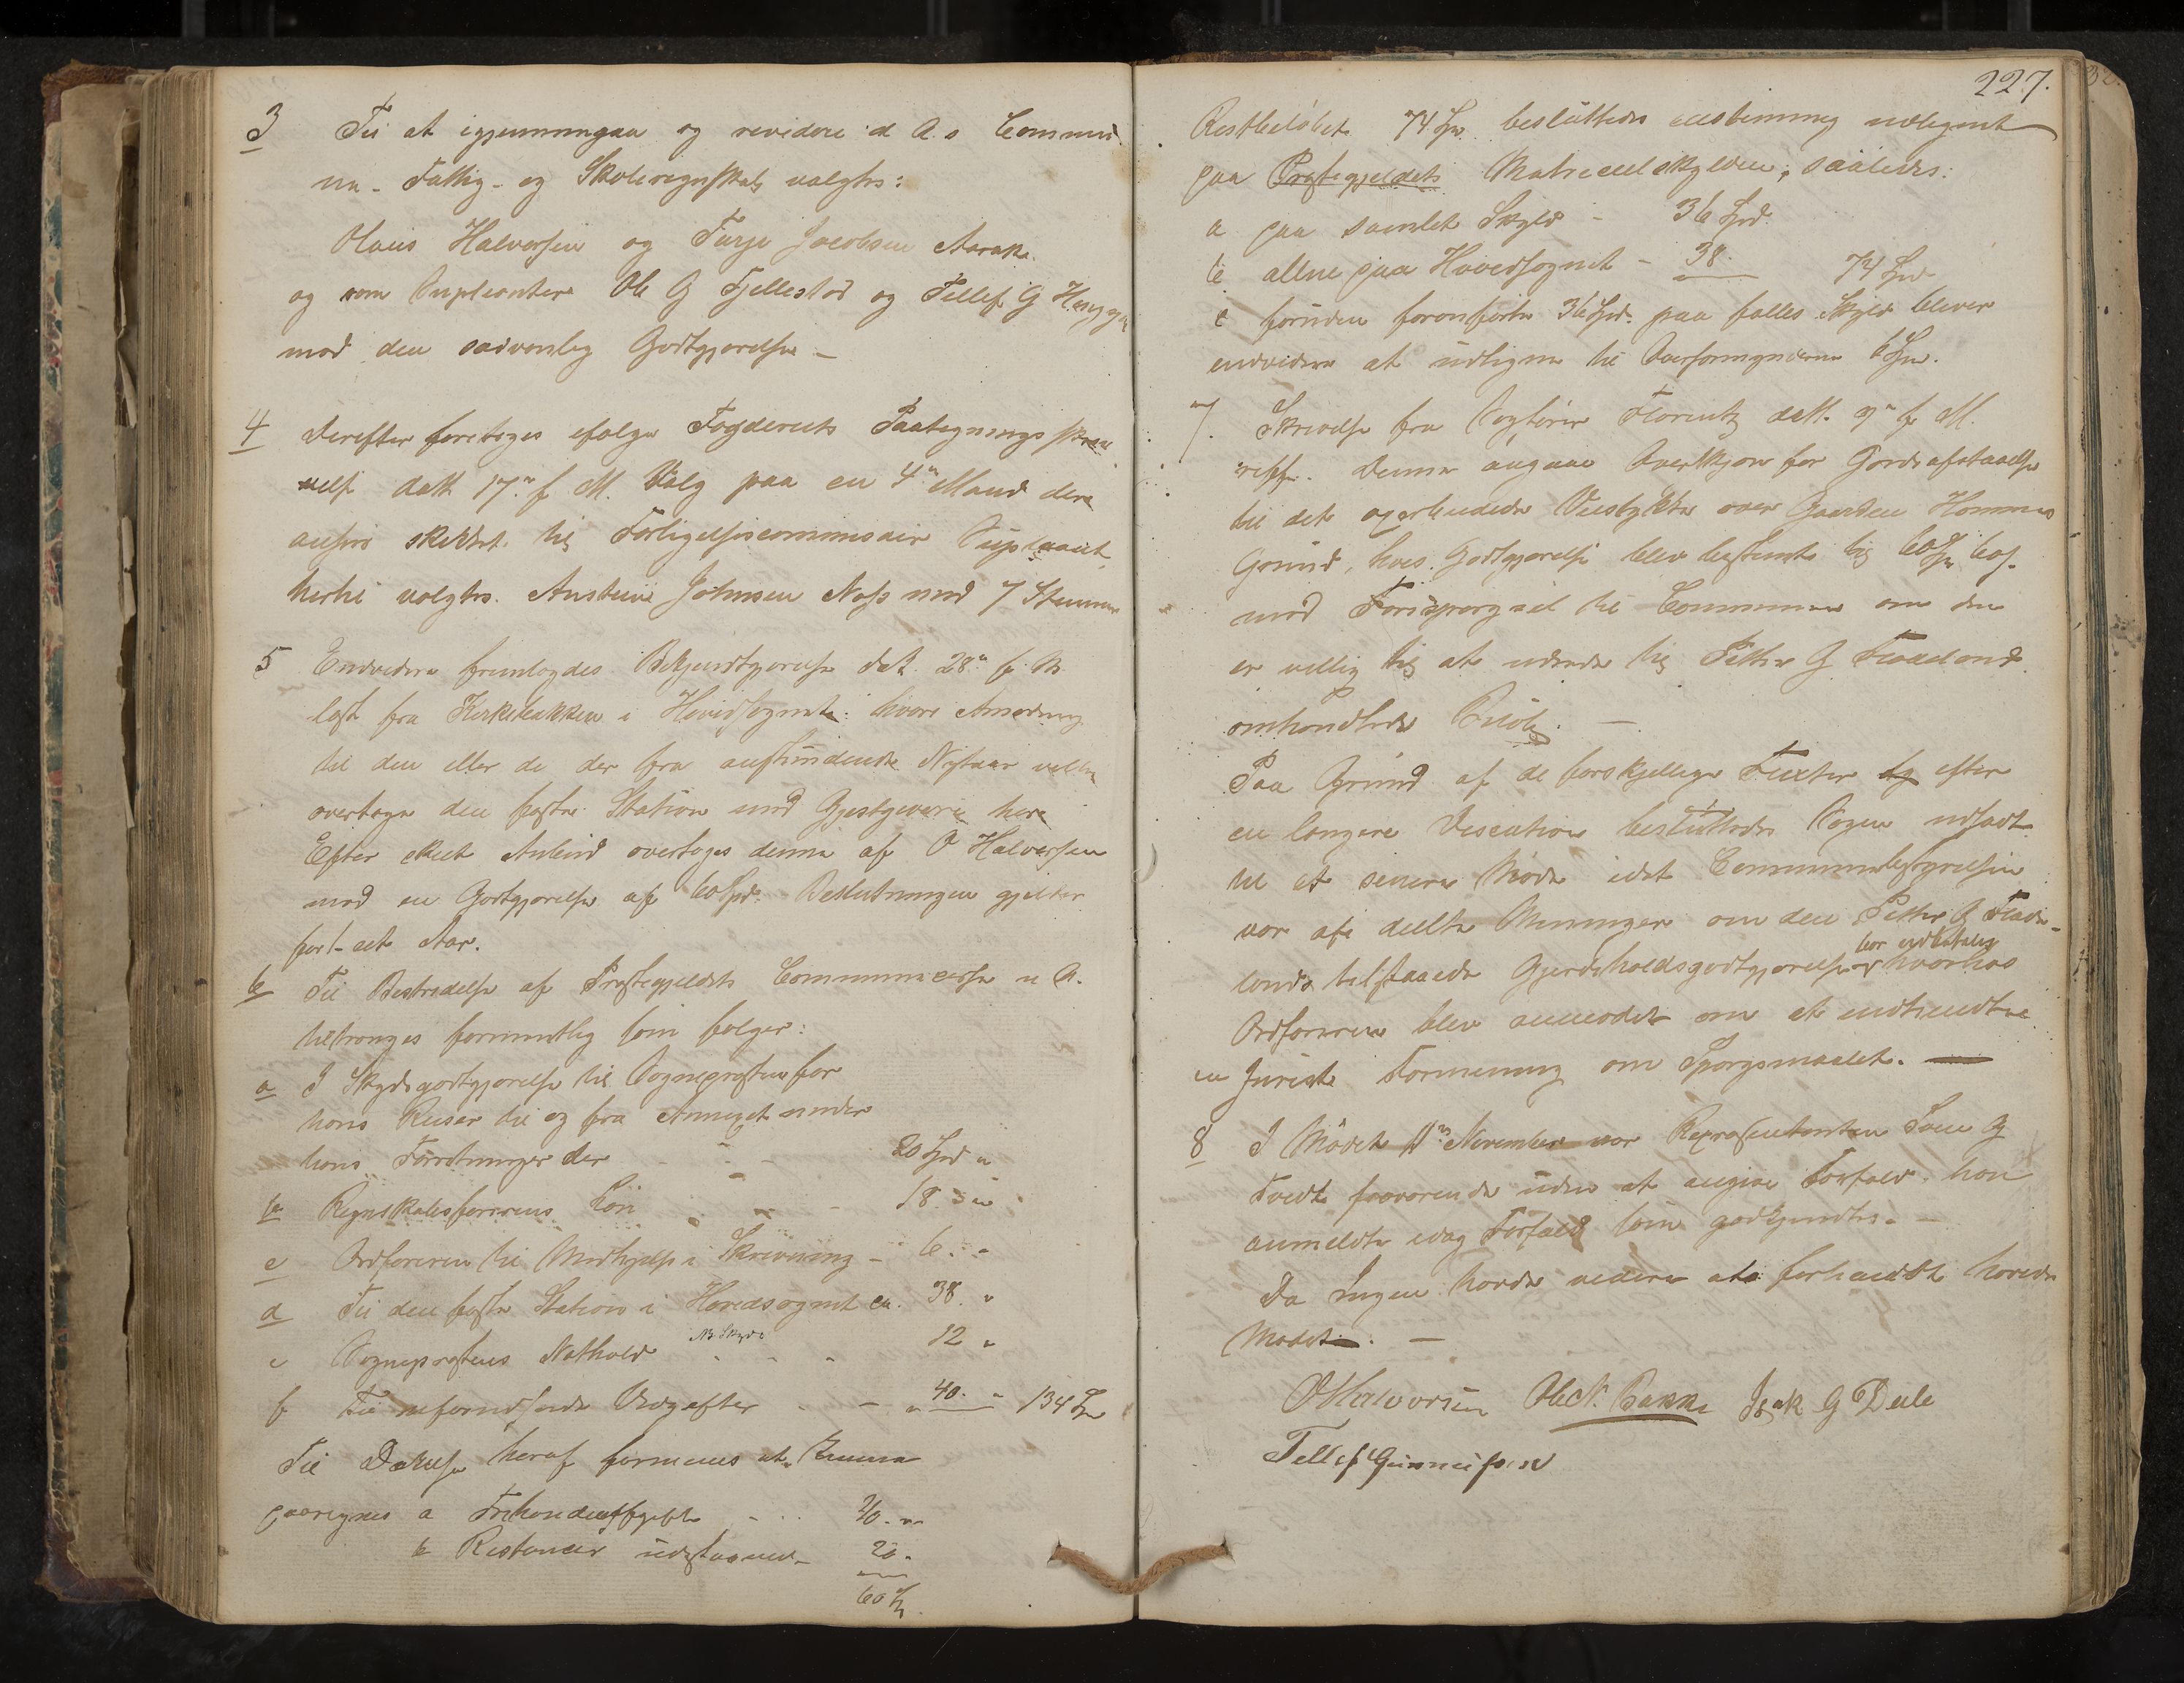 3 Til at igjennemgaa og revidere d. A.s Commu
ne- Fattig- og Skoleregnskab valgtes:
Olaus Halvorsen og Terje Jacobsen Aarak
og som Supleanter Ole G Fjellestad og Tellef G
mod den sædvanlig Godtgjørelse –
4 Derefter foretoges ifølge Fogderiets Paategnings skri
velse datt 17de f. M. Valg paa en 4de Mand
til Forligelsescommissair Supleant
hertil valgtes. Austein Johnsen Næss med 7 Stemmer
5 Endvidere fremlagdes Bekjendtgjørelse dat. 28de f. M.
læst fra Kirkebakken i Hovedsognet: hvori
til den eller de der fra anstundende Nytaar ville
overtage den faste Station med Gjestgiveri her
Efter skeet Anbud overtoges denne af O Halvorsen
mod en Godtgjørelse af 60 Spd. Beslutningen gjelder
for 1 – et Aar.
6 Til Bestridelse af Præstegjeldets Communecasse n. A.
tiltrænges formentlig som følger:
a I Skydsgodtgjørelse til Sognepræsten for
hans Reiser til og fra Annexet under
hans Forretninger der – – 20 Spd "
b Regnskabsførerens Løn – 18 "
c Ordføreren til Medhjelp i Skrivning – 6. "
d Til den faste Station i Hovedsognet ca. 38. "
e Sognepræstens Nathold – – 12 "
f Til uforudseede Udgifter – – 40. " 134 Spd
Til Dækelse heraf formenes at kunne
paaregnes a – – 40. "
b Restancer udestaaende – 20.
60 Spd.
227.
Restbeløbet 74 Spd. besluttedes eenstemmig udlignet
paa Præstegjeldets Matriculskylden; saaledes:
a paa samlet Skyld – 36 Spd.
b allene paa Hovedsognet – 38. 74 Spd
c foruden foranførte 36 Spd. paa fælles Skyld bliver
endvidere at udligne til Overformynderne 6 Spd.
7. Skrivelse fra Cogførir Florentz datt. 9de f. M.
Denne angaar Overskjøn for Jordafstaaelse
til det oparbeidede Veistykke over Gaarden Hommes
Grund, hvis Godtgjørelse blev bestemt til 60 Spd. 60 s.
med Forespørgsel til Communen om den
er villig til at udrede til Petter G Fladeland
omhandlede Beløb. –
Paa Grund af de forskjellige og efter
en længere Discution besluttedes Sagen udsadt
til et senere Møde idet Communebestyrelsen
var af deelte Meninger om den Petter G Flade-
lands tilstaaede Gjerdeholdsgodtgjørelse bør udbetales hvorhos
Ordføreren blev anmodet om at indhendte
en Jurists Formening om Spørgsmaalet. –
8 I Mødet 11te November var Repræsentanten G
Tvedt fraværende uden at angive Forfald. han
anmeldte idag Forfald som godkjendtes. –
Da Ingen havde videre at forhandle hævedes
Mødet. –
O Halvorsen Ole N. Bakke Isak G Dele
Tellef Gunneusen